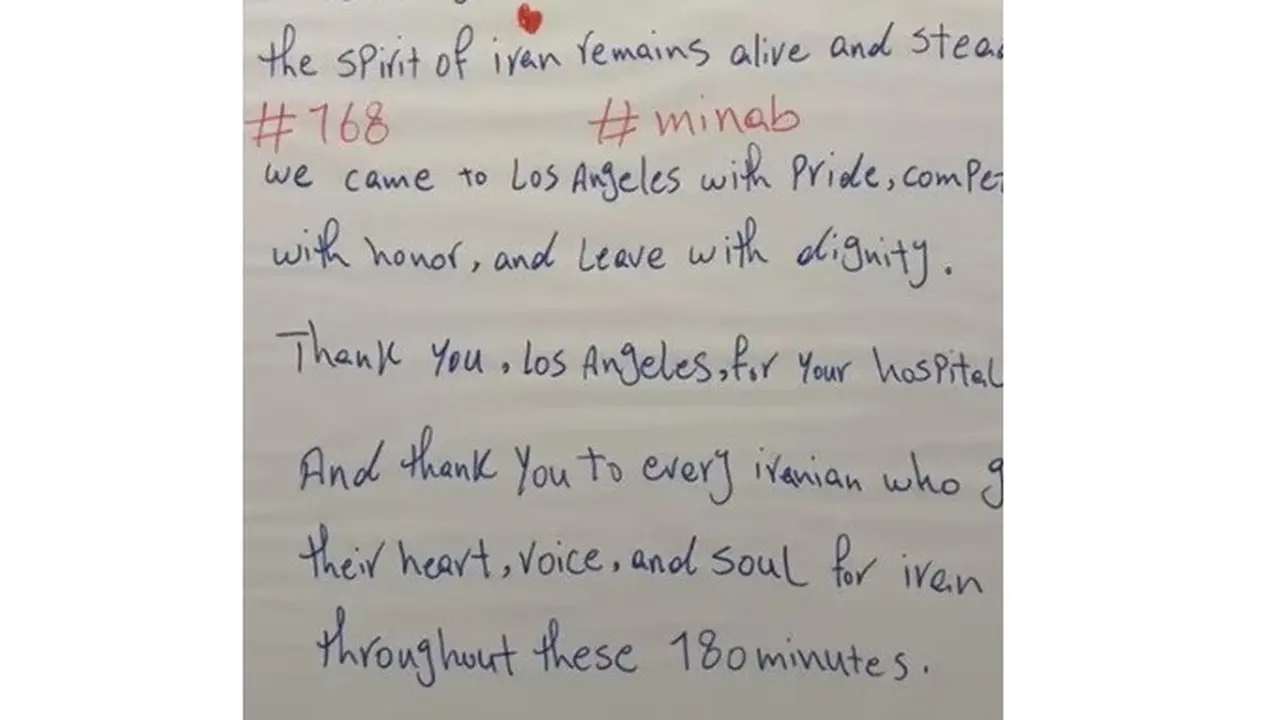 the spirit of iran remains alive and stead
#168 #minab
we came to Los Angeles with Pride, compet
with honor, and Leave with dignity.
Thank you, Los Angeles, for your hospital
And thank you to every iranian who g
their heart, voice, and soul for iran
throughout these 180 minutes.